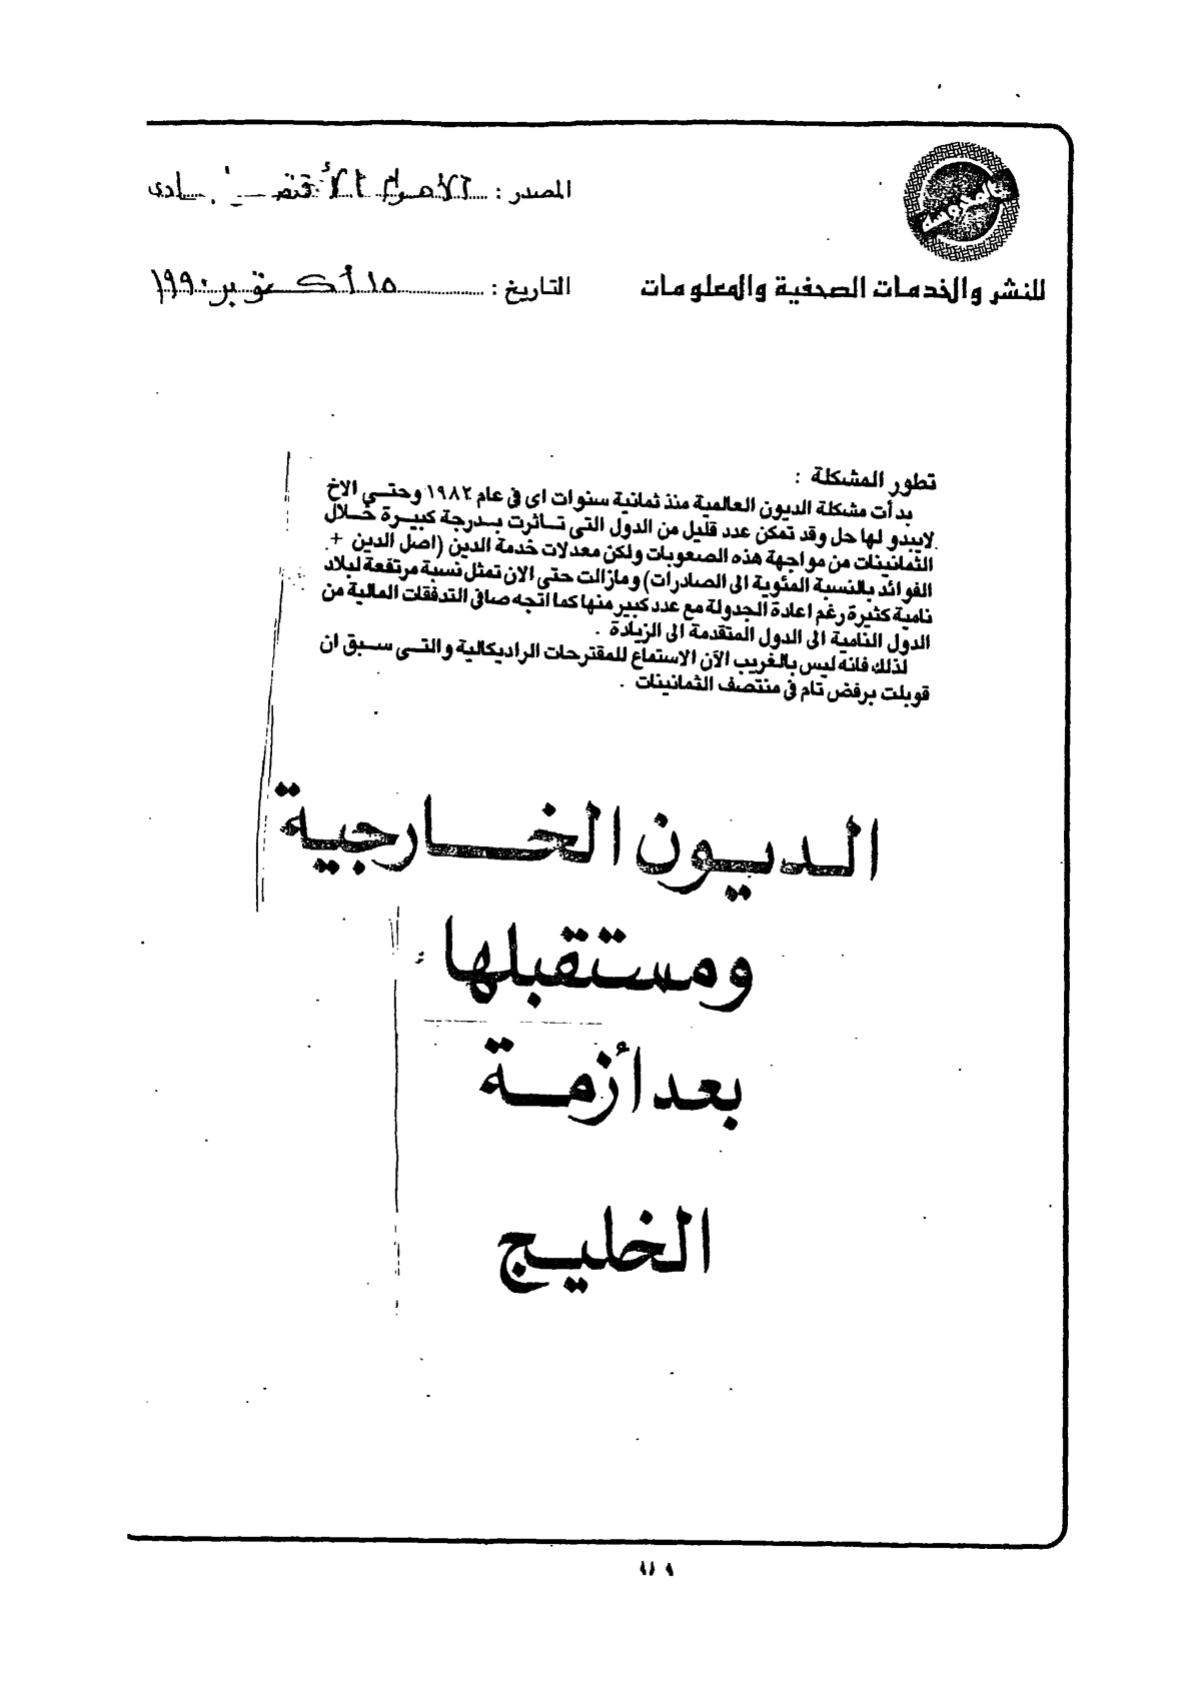 المحروسة
للنشر والخدمات الصحفية والمعلومات
المصدر : الأهرام الأقتصادى
التاريخ : ١٥ أكتوبر ١٩٩٠
تطور المشكلة :
بدأت مشكلة الديون العالمية منذ ثمانية سنوات اى فى عام ١٩٨٢ وحتى الاخ
لايبدو لها حل وقد تمكن عدد قليل من الدول التى تاثرت بدرجة كبيرة خلال
الثمانينات من مواجهة هذه الصعوبات ولكن معدلات خدمة الدين (اصل الدين +
الفوائد بالنسبة المئوية الى الصادرات) ومازالت حتى الان تمثل نسبة مرتفعة لبلاد
نامية كثيرة رغم اعادة الجدولة مع عدد كبير منها كما اتجه صافى التدفقات المالية من
الدول النامية الى الدول المتقدمة الى الزيادة .
لذلك فانه ليس بالغريب الآن الاستماع للمقترحات الراديكالية والتى سبق ان
قوبلت برفض تام فى منتصف الثمانينات .
الديون الخارجية
ومستقبلها
بعد أزمة
الخليج